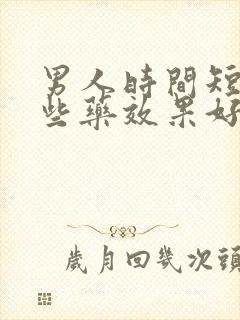 男人時間短
些藥效果好
歲月回幾次頭